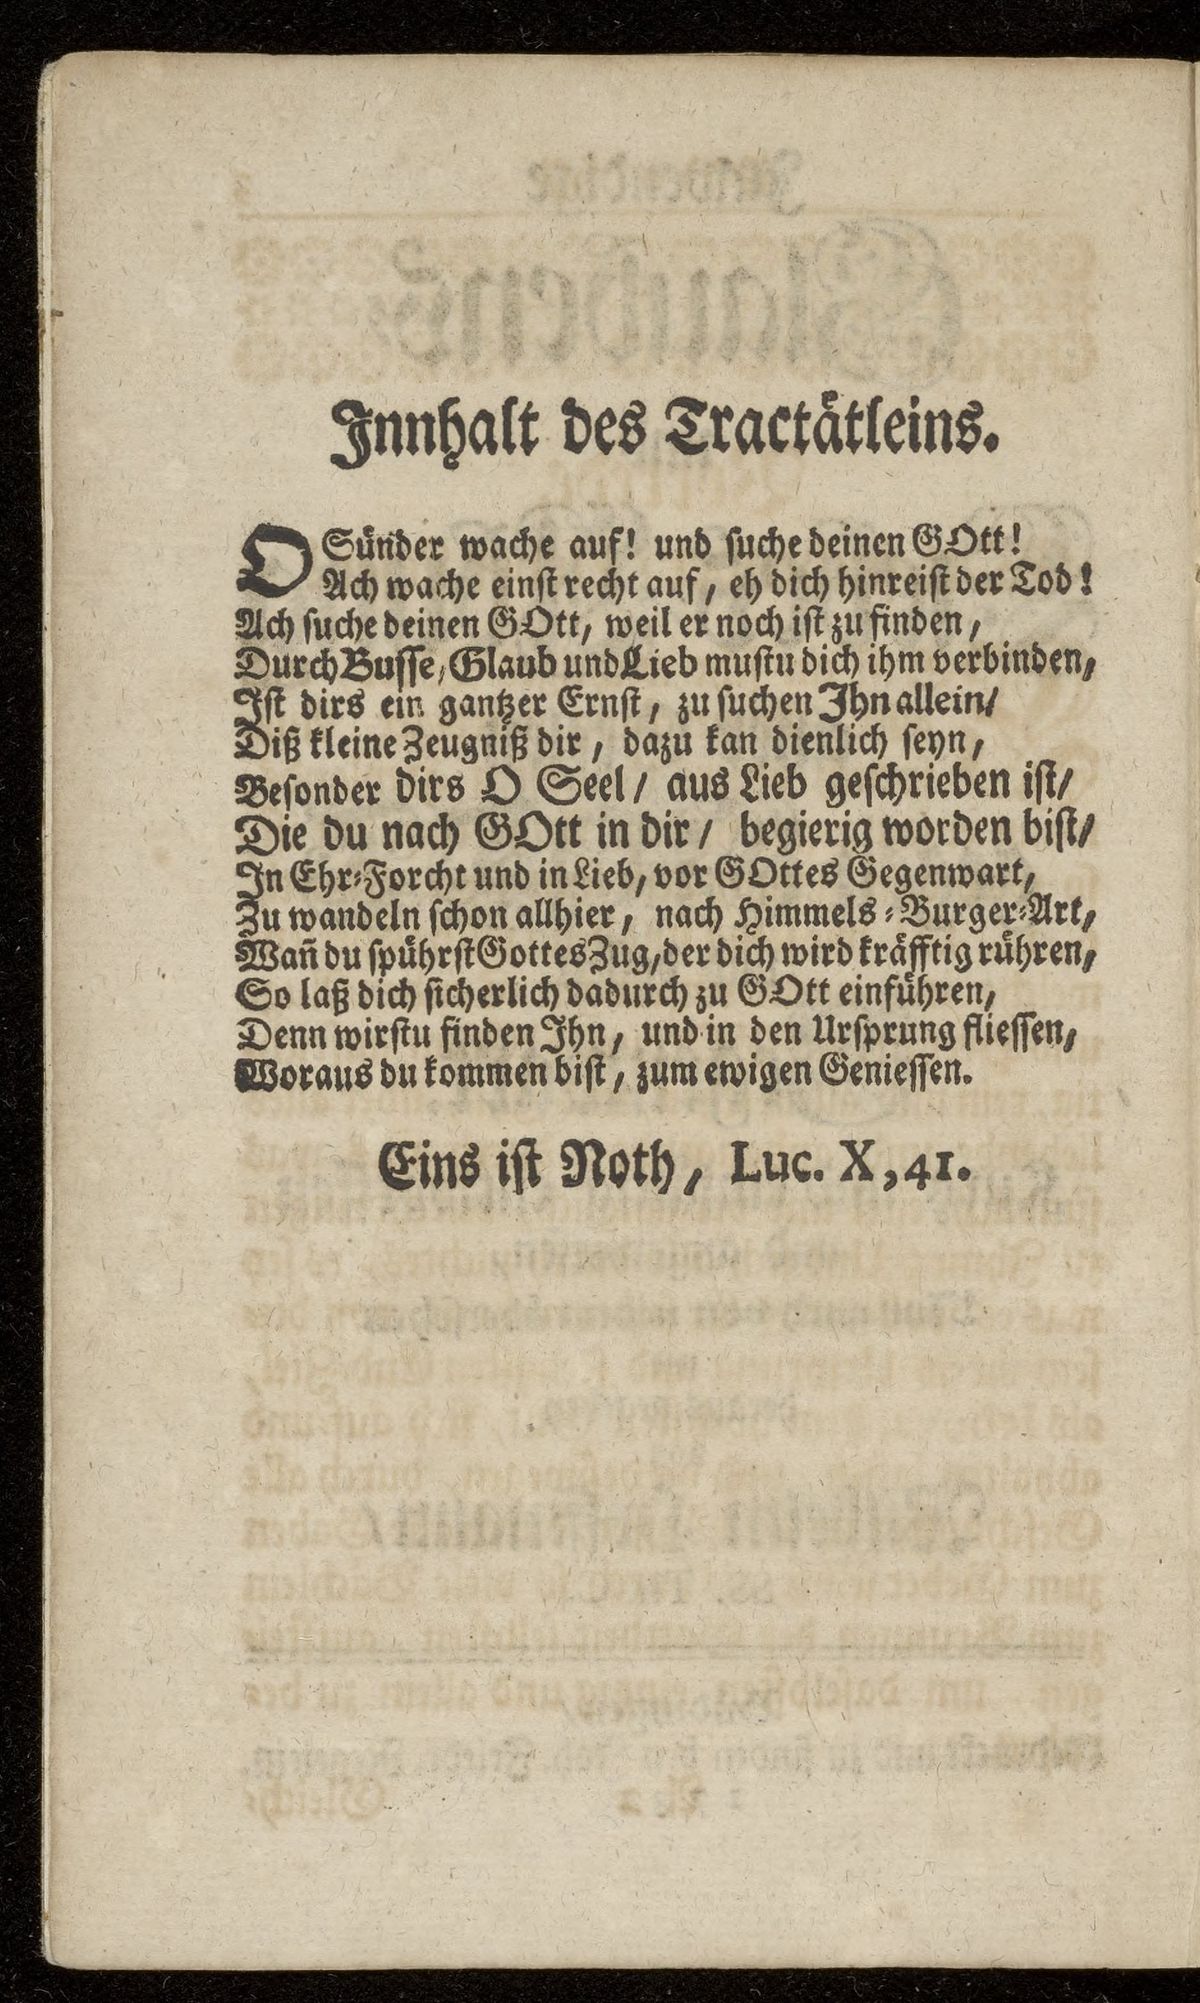 Innhalt des Tractätleins.
O Sünder wache auf! und suche deinen GOtt!
Ach wache einst recht auf, eh dich hinreist der Tod!
Ach suche deinen GOtt, weil er noch ist zu finden,
Durch Busse, Glaub und Lieb mustu dich ihm verbinden,
Ist dirs ein gantzer Ernst, zu suchen Ihn allein/
Diß kleine Zeugniß dir, dazu kan dienlich seyn,
Besonder dirs O Seel/ aus Lieb geschrieben ist/
Die du nach GOtt in dir/ begierig worden bist/
In Ehr-Forcht und in Lieb, vor GOttes Gegenwart,
Zu wandeln schon allhier, nach Himmels-Burger-Art,
Wañ du spührst Gottes Zug, der dich wird kräfftig rühren,
So laß dich sicherlich dadurch zu GOtt einführen,
Denn wirstu finden Ihn, und in den Ursprung fliessen,
Woraus du kommen bist, zum ewigen Geniessen.
Eins ist Noth, Luc. X, 41.